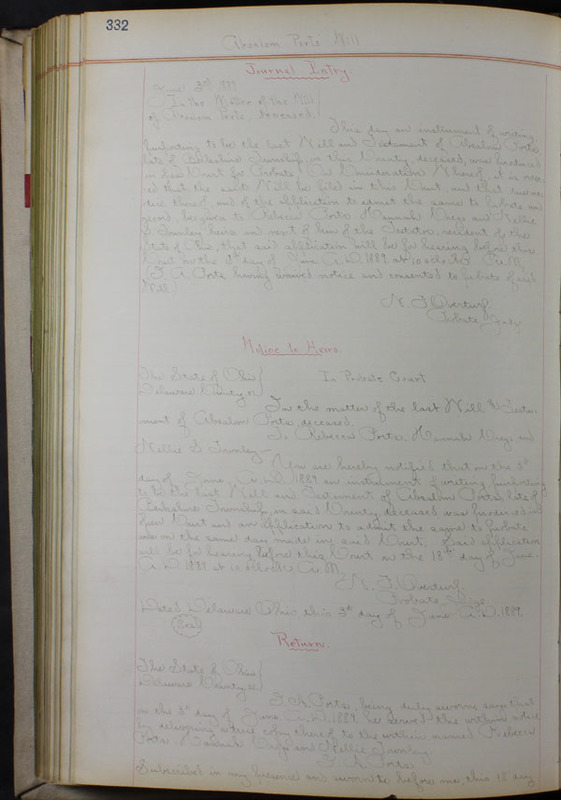 332
Absalom Ports Will
Journal Entry
June 3rd 1889
In the Matter of the Will
of Absalom Ports, deceased.
This day an instrument of writing,
purporting to be the last Will and Testament of Absalom Ports,
late of Berkshire Township, in this County, deceased, was produced
in open Court for Probate. On Consideration Whereof, it is order-
ed that the said Will be filed in this Court, and that
notice thereof and of the application to admit the same to probate and
record, be given to Rebecca Ports, Hannah and Nellie
S. heirs and next of kin of the Testator, resident of the
State of Ohio, that said application will be for hearing before this
Court on the day of June A.D. 1889 at 10 o'clock A.M.
Ports having waived notice and consented to probate of said
Will.
Overturf
Probate Judge
Notice to Heirs.
The State of Ohio
Delaware County ss
In Probate Court
In the matter of the last Will & Testa-
ment of Absalom Ports, deceased.
To Rebecca Ports, Hannah and
Nellie S.
You are hereby notified that on the 3rd
day of June, A.D. 1889 an instrument of writing purporting
to be the last Will and Testament of Absalom Ports, late of
Berkshire Township, in said County, deceased was produced in
open Court and an application to admit the same to probate
was on the same day made in said Court. Said application
will be for hearing before this Court on the 18th day of June.
A.D. 1889 at 10 o'clock A.M.
Overturf
Probate Judge
Dated Delaware Ohio, this 3rd day of June A.D. 1889.
Seal
Return.
The State of Ohio
Delaware County ss
Ports, being duly sworn says that
on the 3rd day of June A.D. 1889, he served the within notice
by delivering a true copy thereof to the within named Rebecca
Ports, Hannah and Nellie
Ports
Subscribed in my presence and sworn to before me, this 18 day